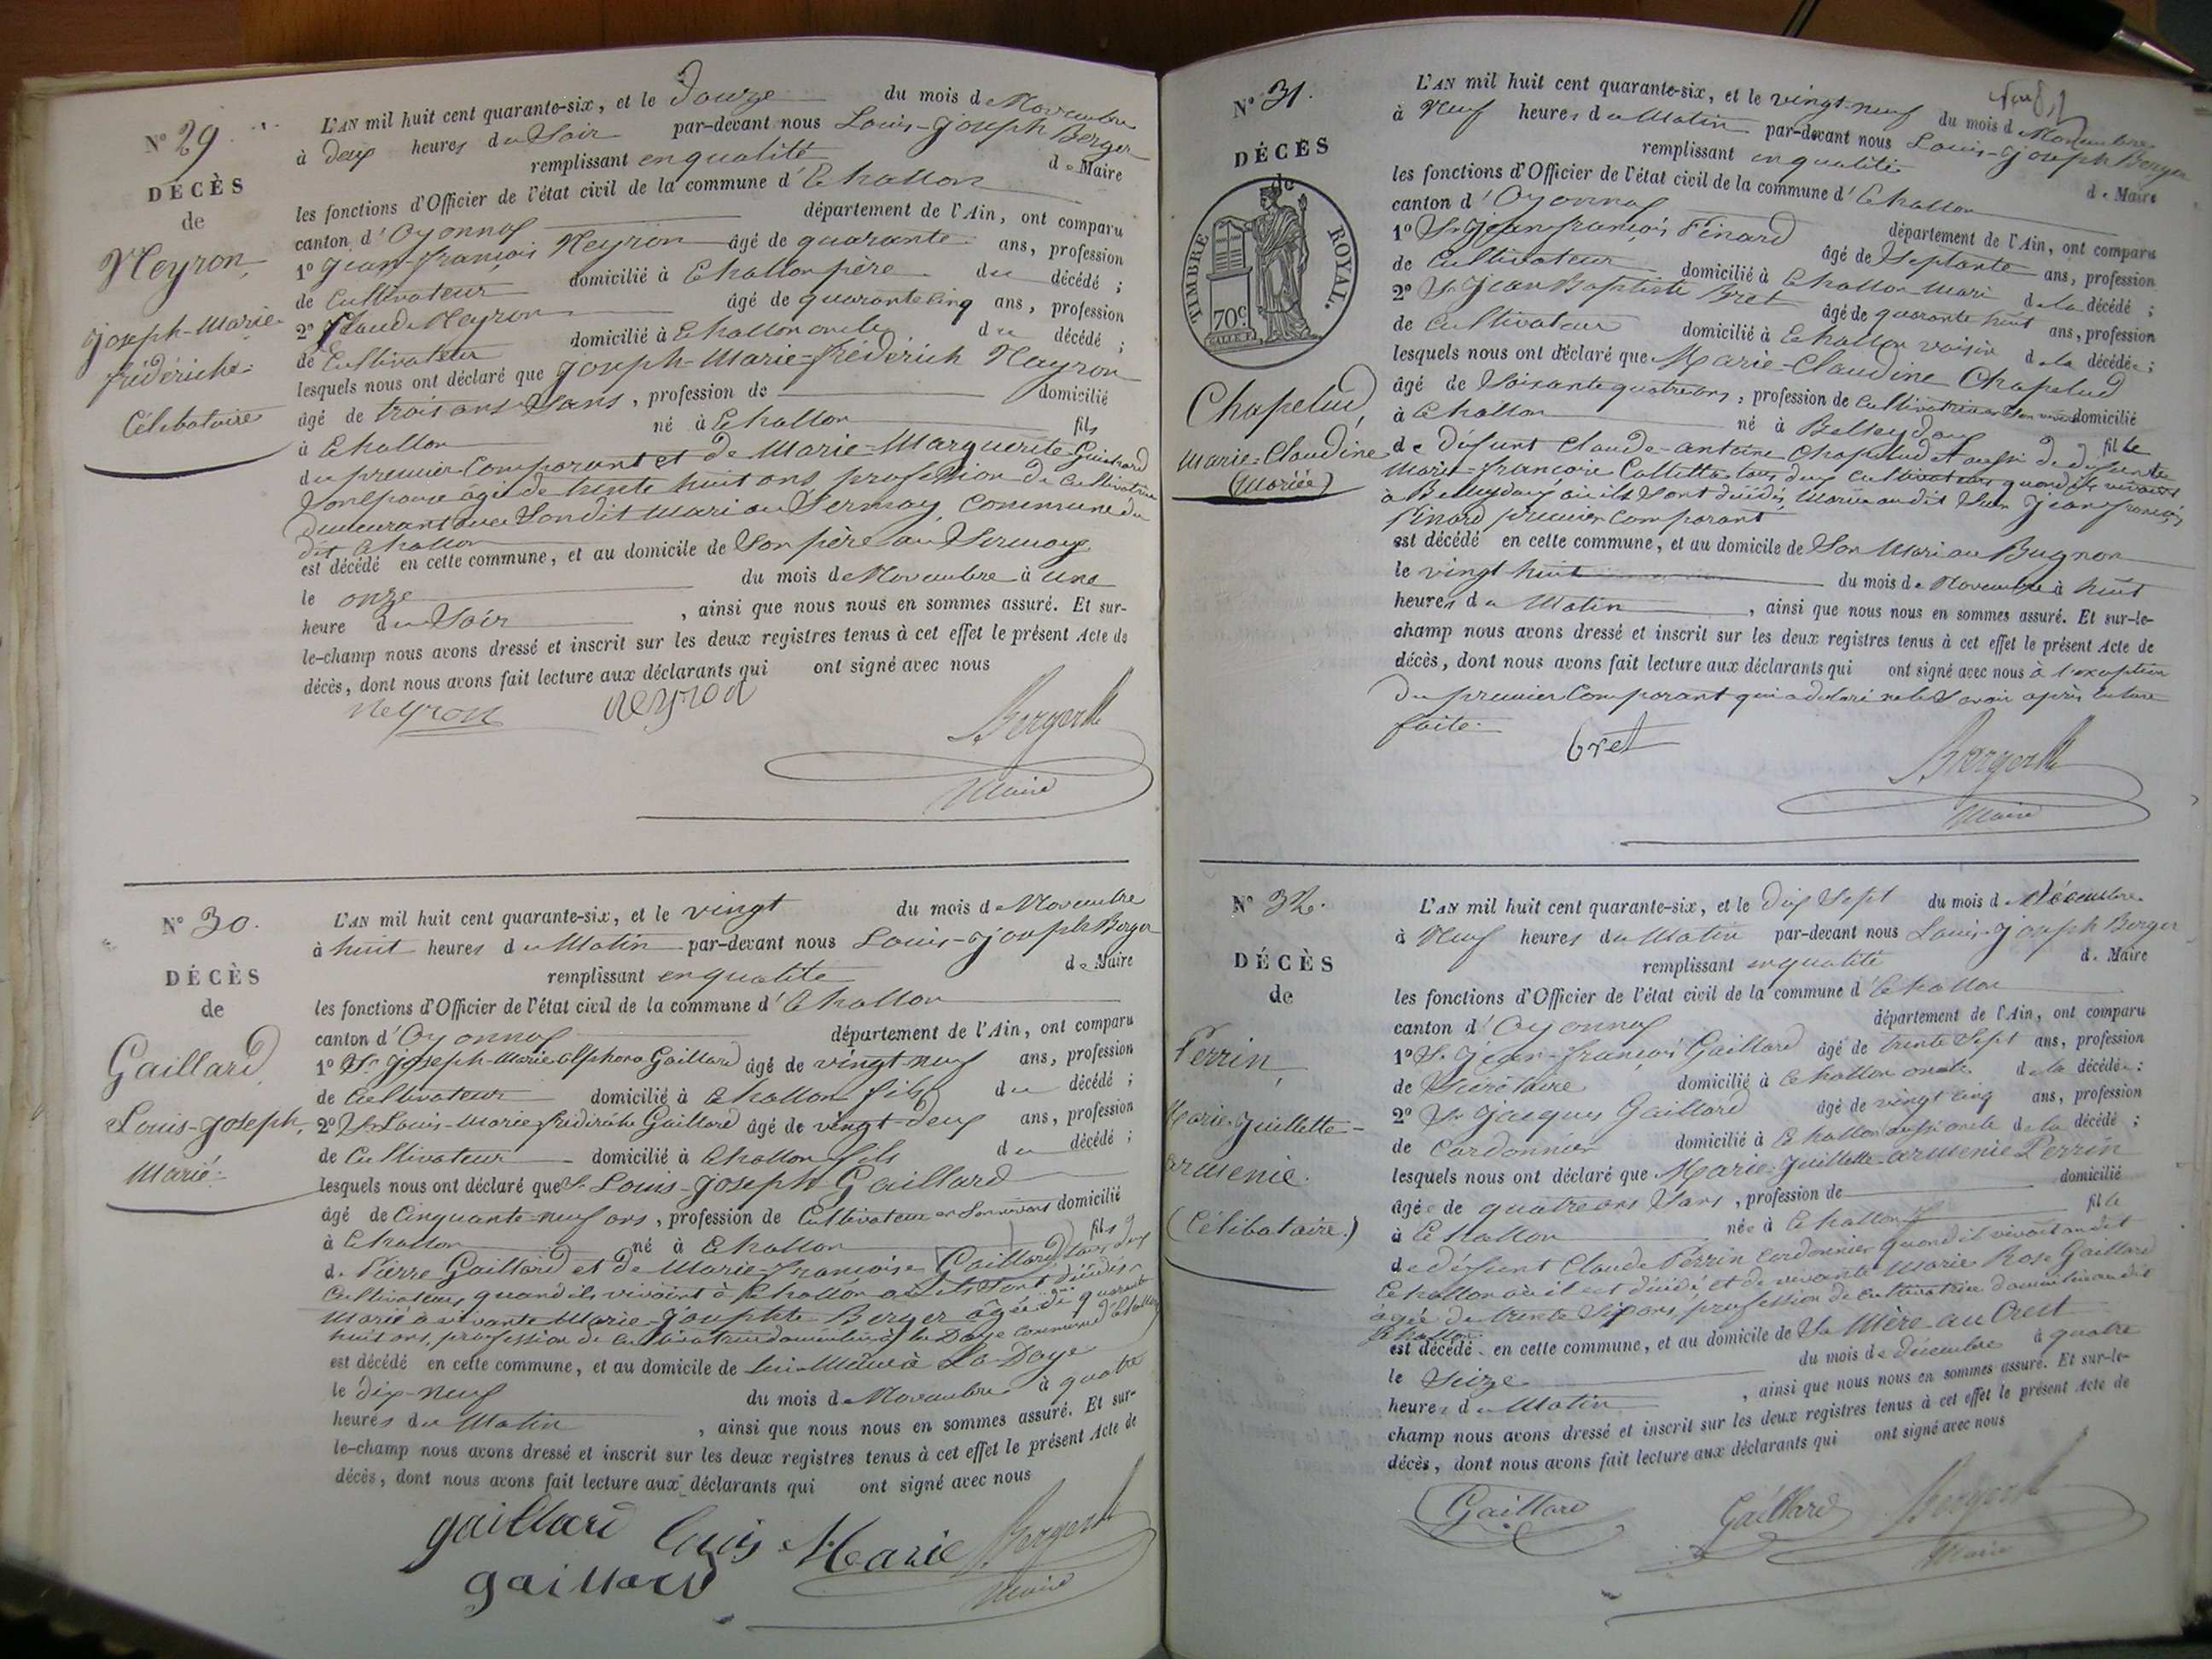 N° 29
DÉCÈS
de
Neyron,
joseph-Marie-
frédérich.
Célibataire
L'AN mil huit cent quarante-six, et le Douze du mois de Novembre
à deux heures du Soir par-devant nous Louis-joseph Berger
remplissant en qualité de Maire
les fonctions d'Officier de l'état civil de la commune d'Echallon
canton d'Oyonnax département de l'Ain, ont comparu
1° jean-françois Neyron âgé de quarante ans, profession
de Cultivateur domicilié à Echallon père du décédé ;
2° Claude Neyron âgé de quarante cinq ans, profession
de Cultivateur domicilié à Echallon oncle du décédé ;
lesquels nous ont déclaré que joseph-Marie-frédérich Neyron
âgé de trois ans Sans, profession de domicilié
à Echallon né à Echallon fils
du premier Comparant et de Marie-Marguerite
Son épouse âgée de trente huit ans profession de Cultivatrice
demeurant avec Son dit mari au Sermay, Commune du
dit Echallon
est décédé en cette commune, et au domicile de Son père au Sermay
le onze du mois de Novembre à une
heure du Soir, ainsi que nous nous en sommes assuré. Et sur-
le-champ nous avons dressé et inscrit sur les deux registres tenus à cet effet le présent Acte de
décès, dont nous avons fait lecture aux déclarants qui ont signé avec nous
Neyron neyron Berger
Maire
N° 30.
DÉCÈS
de
Gaillard,
Louis-joseph,
Marié
L'AN mil huit cent quarante-six, et le vingt du mois de Novembre
à huit heures du Matin par-devant nous Louis-joseph Berger
remplissant en qualité de Maire
les fonctions d'Officier de l'état civil de la commune d'Echallon
canton d'Oyonnax département de l'Ain, ont comparu
1° Sr joseph-Marie alphonse Gaillard âgé de vingt-neuf ans, profession
de Cultivateur domicilié à Echallon fils du décédé ;
2° Sr Louis-Marie frédérich Gaillard âgé de vingt-deux ans, profession
de Cultivateur domicilié à Echallon fils du décédé ;
lesquels nous ont déclaré que Sr Louis-joseph Gaillard
âgé de Cinquante-neuf ans, profession de Cultivateur en Son vivant domicilié
à Echallon né à Echallon fils
de Pierre Gaillard et de Marie-françoise Gaillard tous deux
Cultivateurs quand ils vivaint à Echallon où ils Sont décédés
Marié à vivante Marie-josephte Berger âgée de quarante
huit ans, profession de Cultivatrice domiciliée à la Doye commune d'Echallon
est décédé en cette commune, et au domicile de lui Même à La Doye
le dix-neuf du mois de Novembre à quatre
heures du Matin, ainsi que nous nous en sommes assuré. Et sur-
le-champ nous avons dressé et inscrit sur les deux registres tenus à cet effet le présent Acte de
décès, dont nous avons fait lecture aux déclarants qui ont signé avec nous
gaillard louis Marie Berger
gaillard Maire
N° 31.
DÉCÈS
de
TIMBRE ROYAL.
70c
Chapelud,
Marie-Claudine
(Mariée)
L'AN mil huit cent quarante-six, et le vingt-neuf du mois de Novembre
à Neuf heures du Matin par-devant nous Louis-joseph Berger
remplissant en qualité de Maire
les fonctions d'Officier de l'état civil de la commune d'Echallon
canton d'Oyonnax département de l'Ain, ont comparu
1° Sr jean-françois Pinard âgé de Septante ans, profession
de Cultivateur domicilié à Echallon Mari de la décédé ;
2° Sr jean Baptiste Bret âgé de quarante huit ans, profession
de Cultivateur domicilié à Echallon voisin de la décédée ;
lesquels nous ont déclaré que Marie-Claudine Chapelud
âgé de Soixante quatre ans, profession de Cultivatrice en Son vivant domicilié
à Echallon né à Belleydoux fille
de défunt Claude-antoine Chapelud et aussi de défunte
Marie-françoise Collette tous deux Cultivateurs quand ils vivaint
à Belleydoux où ils Sont décédés, Mariée au dit Sieur jean françois
Pinard premier Comparant
est décédé en cette commune, et au domicile de Son Mari au Bugnon
le vingt huit du mois de Novembre à huit
heures du Matin, ainsi que nous nous en sommes assuré. Et sur-le-
champ nous avons dressé et inscrit sur les deux registres tenus à cet effet le présent Acte de
décès, dont nous avons fait lecture aux déclarants qui ont signé avec nous à l'exception
du premier Comparant qui a déclaré ne le Savoir après lecture
faite.
bret Berger
Maire
N° 32.
DÉCÈS
de
Perrin,
Marie-juillette-
armenie.
(Célibataire.)
L'AN mil huit cent quarante-six, et le Dix Sept du mois de Décembre
à Neuf heures du Matin par-devant nous Louis-joseph Berger
remplissant en qualité de Maire
les fonctions d'Officier de l'état civil de la commune d'Echallon
canton d'Oyonnax département de l'Ain, ont comparu
1° Sr jean-françois Gaillard âgé de trente Sept ans, profession
de Sécrétaire domicilié à Echallon oncle de la décédée ;
2° Sr jacques Gaillard âgé de vingt cinq ans, profession
de Cordonnier domicilié à Echallon aussi oncle de la décédé ;
lesquels nous ont déclaré que Marie-juillette-armenie Perrin
âgée de quatre ans Sans, profession de domicilié
à Echallon née à Echallon fille
de défunt Claude Perrin Cordonnier quand il vivait au dit
Echallon où il est décédé et de vivante Marie Rose Gaillard
âgée de trente Six ans, profession de Cultivatrice domiciliée au dit
Echallon
est décédé en cette commune, et au domicile de Sa Mère au Crest
le Seize du mois de décembre à quatre
heures du Matin, ainsi que nous nous en sommes assuré. Et sur-le-
champ nous avons dressé et inscrit sur les deux registres tenus à cet effet le présent Acte de
décès, dont nous avons fait lecture aux déclarants qui ont signé avec nous
Gaillard Gaillard Berger
Maire